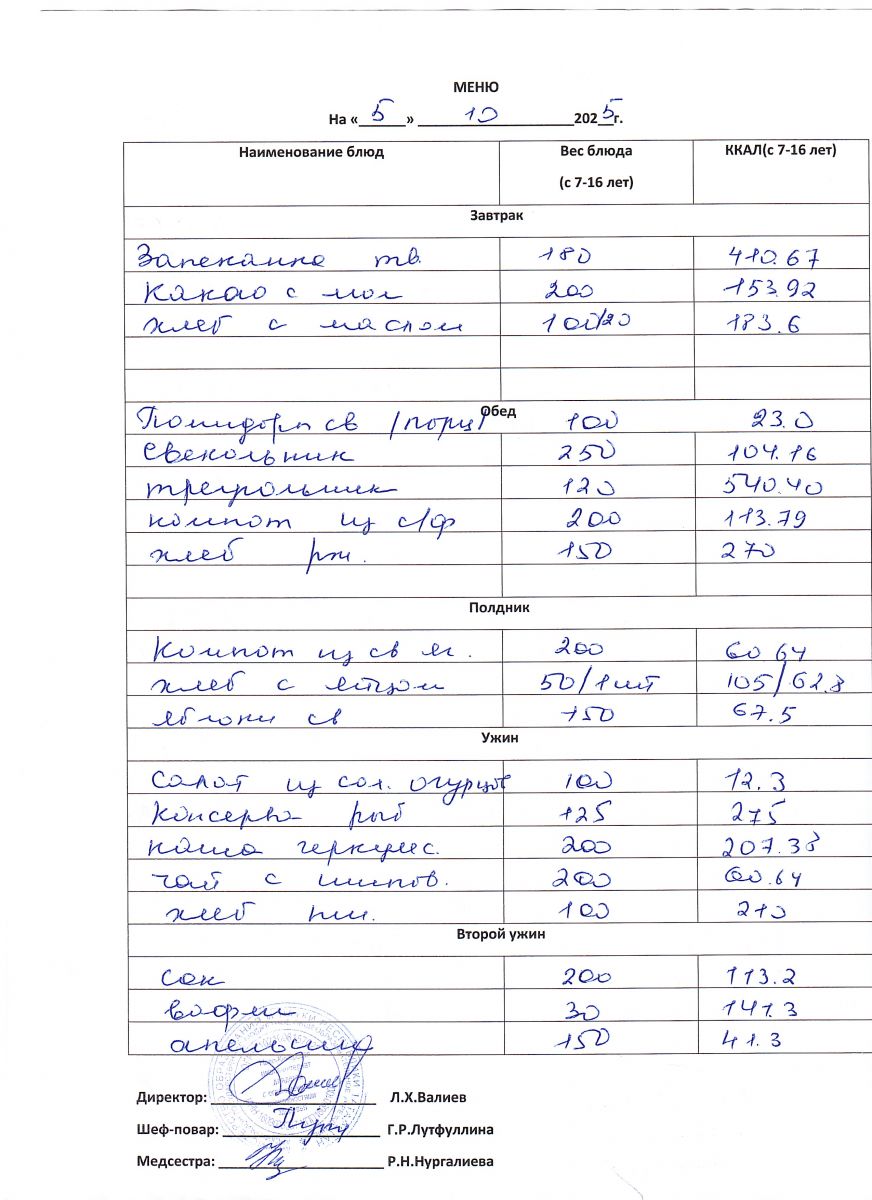 МЕНЮ
На «5» 10 2025г.
Наименование блюд Вес блюда (с 7-16 лет) ККАЛ(с 7-16 лет)
Завтрак
Запеканка тв. 180 410.67
Какао с мол 200 153.92
хлеб с маслом 100/20 183.6
Обед
Помидоры св /порц/ 100 23.0
Свекольник 250 104.16
треугольник 120 540.40
компот из с/ф 200 113.79
хлеб рж. 150 270
Полдник
Компот из св яг. 200 60.64
хлеб с яйцом 50/1шт 105/62.8
яблоки св 150 67.5
Ужин
Салат из сол. огурцов 100 12.3
Консерва рыб 125 275
каша геркулес. 200 207.38
чай с шипов. 200 60.64
хлеб пш. 100 210
Второй ужин
сок 200 113.2
вафли 30 141.3
апельсин 150 41.3
Директор: Л.Х.Валиев
Шеф-повар: Г.Р.Лутфуллина
Медсестра: Р.Н.Нургалиева